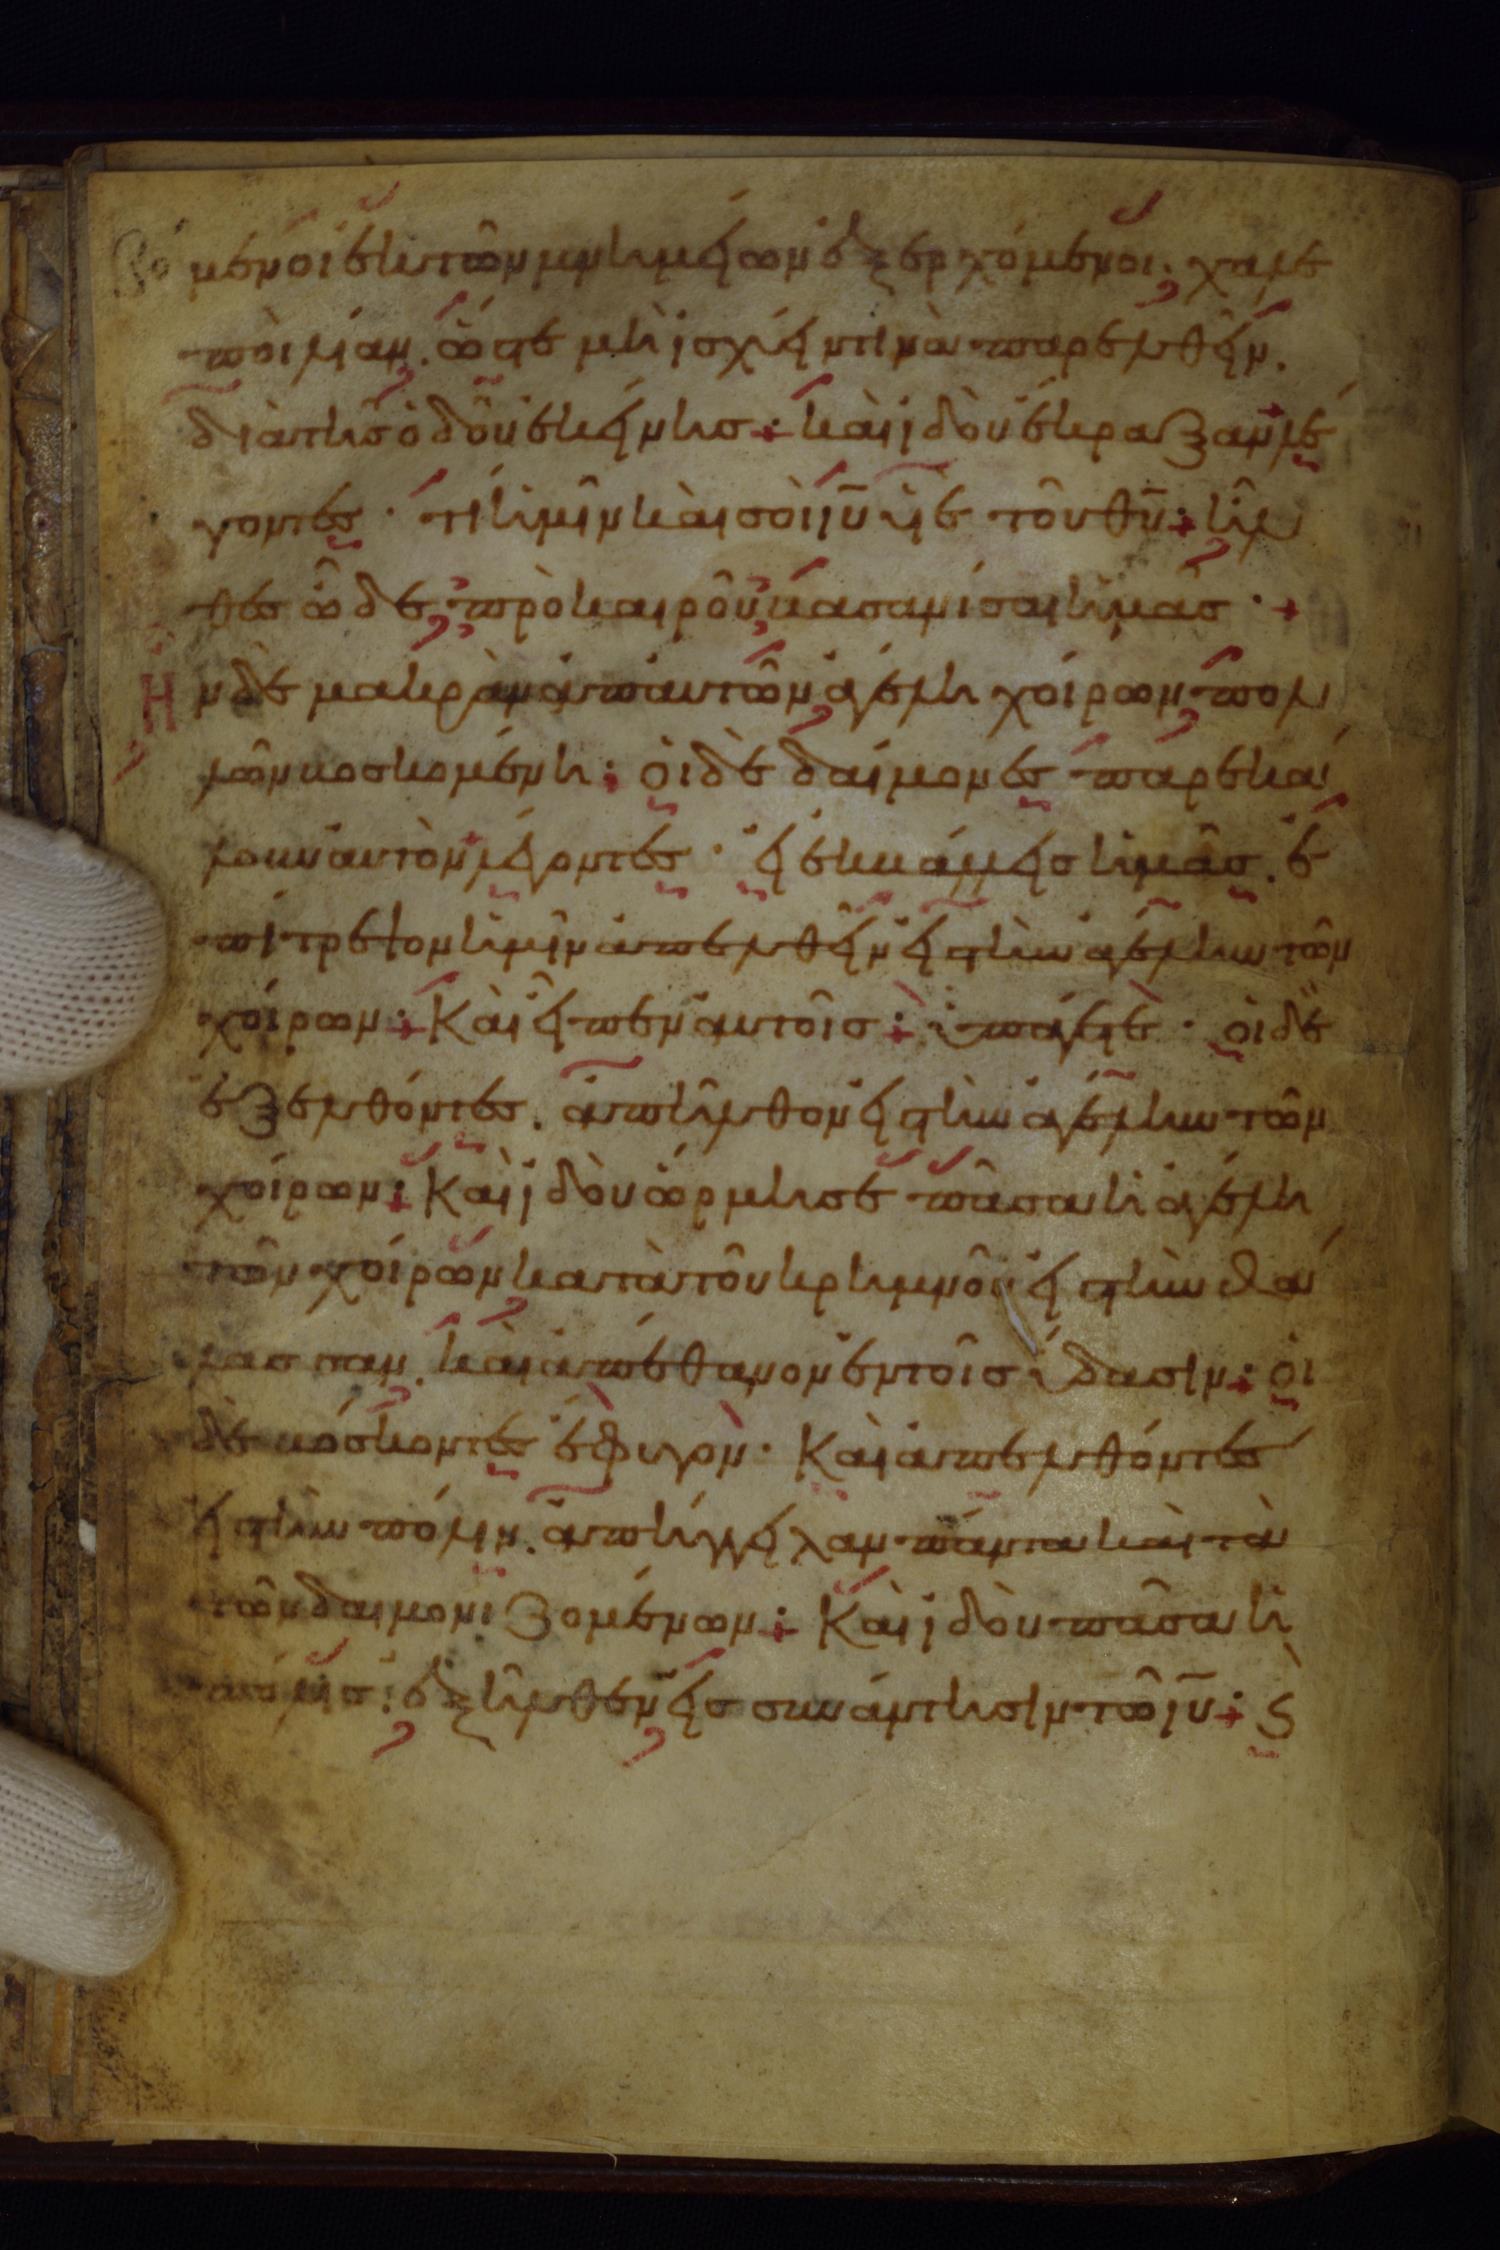 μενοι ἐκ τῶν μνημείων ἐξερχόμενοι, χαλε
ποὶ λίαν. ὥστε μὴ ἰσχύειν τινὰ παρελθεῖν.
διὰ τῆς ὁδοῦ ἐκείνης· καὶ ἰδοὺ ἔκραξαν λέ
γοντες · τί ἡμῖν καὶ σοὶ ἰῦ υἱὲ τοῦ θῦ· ἦλ
θες ὧδε πρὸ καιροῦ βασανίσαι ἡμᾶς ·
Ην δὲ μακρὰν ἀπ' αὐτῶν ἀγέλη χοίρων πολ
λῶν βοσκομένη: οἱ δὲ δαίμονες παρεκά
λουν αὐτὸν λέγοντες · εἰ ἐκβάλλεις ἡμᾶς. ἐ
πίτρεψον ἡμῖν ἀπελθεῖν εἰς τὴν ἀγέλην τῶν
χοίρων: Καὶ εἶπεν αὐτοῖς: ὑπάγετε · οἱ δὲ
ἐξελθόντες. ἀπῆλθον εἰς τὴν ἀγέλην τῶν
χοίρων: Καὶ ἰδοὺ ὥρμησε πᾶσα ἡ ἀγέλη
τῶν χοίρων κατὰ τοῦ κρημνοῦ εἰς τὴν θά
λασσαν. καὶ ἀπέθανον ἐν τοῖς ὕδασιν: οἱ
δὲ βόσκοντες ἔφυγον· Καὶ ἀπελθόντες
εἰς τὴν πόλιν. ἀπήγγειλαν πάντα καὶ τὰ
τῶν δαιμονιζομένων: Καὶ ἰδοὺ πᾶσα ἡ
πόλις ἐξῆλθεν εἰς συνάντησιν τῶ ἰῦ: ϛ